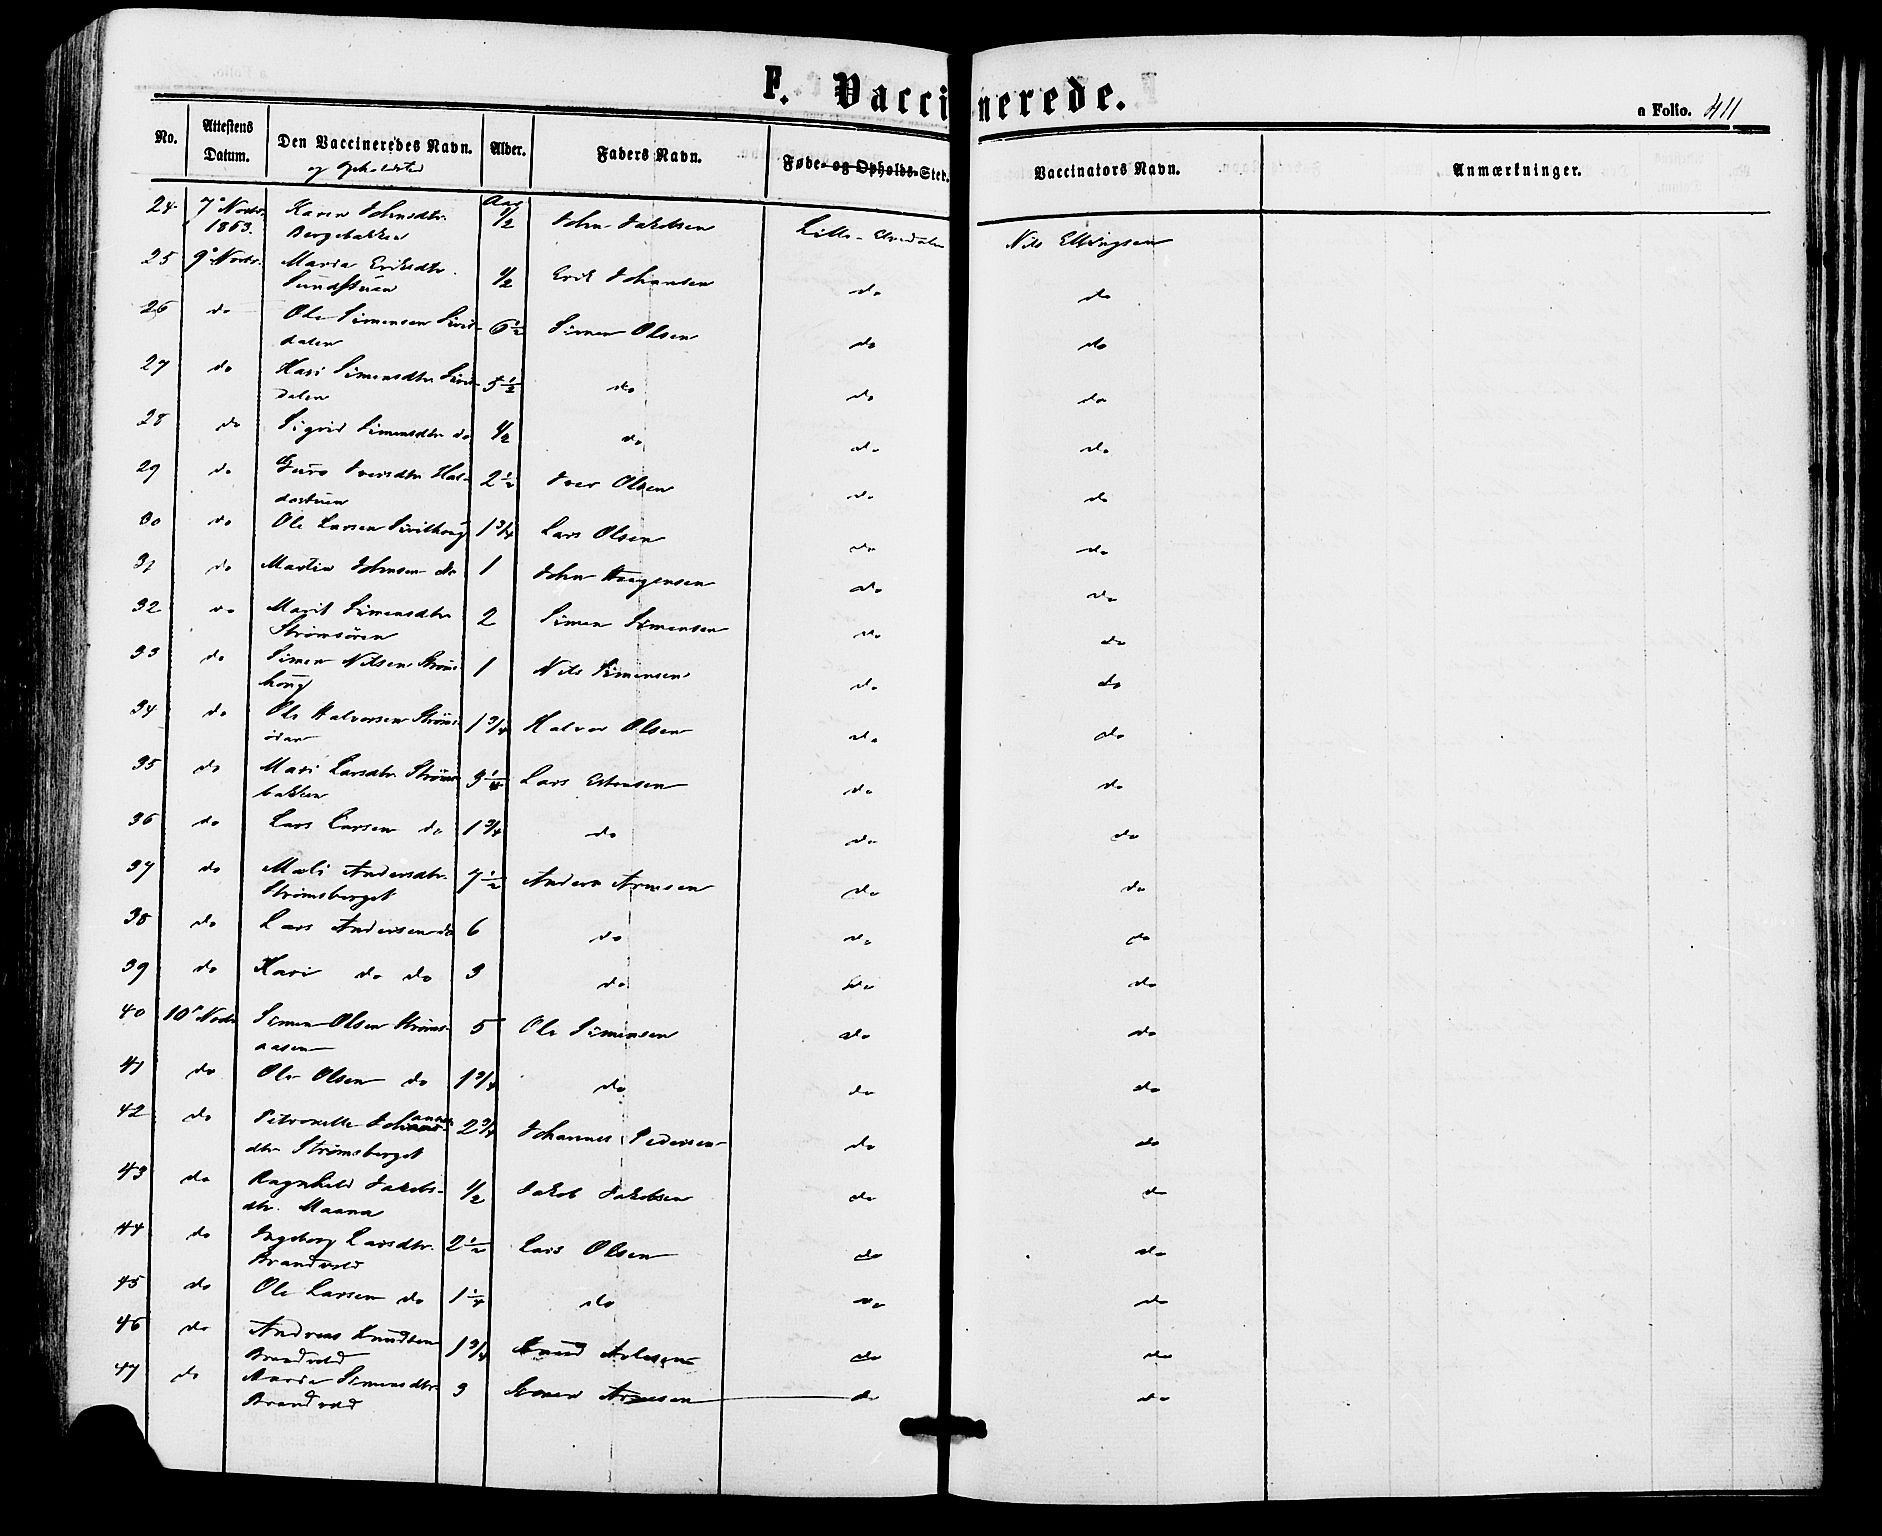 F. Vaccinerede.
a Folio. 411
No. Attestens Datum. Den Vaccineredes Navn. og Opholdsted Alder. Faders Navn. Føde- og Opholds-Sted. Vaccinators Navn. Anmærkninger.
24. 7de Novbr. 1863. Karen Johnsdtr. Bergebakken Aar 1/2 John Jakobsen Lille-Elvedalen Nils Ellingsen
25 9de Novbr. Maria Eriksdtr. Sundstuen 1/2 Erik Johansen do do
26 do Ole Simensen 6 1/2 Simen Olsen do do
27 do Kari Simensdtr. 5 1/2 do do do
28 do Sigrid Simensdtr. do 1/2 do do do
29 do Guro Iversdtr. 2 1/2 Iver Olsen do do
30 do Ole Larsen 1 3/4 Lars Olsen do do
31 do Martin Johnsen do 1 John Haagensen do do
32 do Marit Simensdtr. Strømsøren 2 Simen Simensen do do
33 do Simen Nilsen Strømshoug 1 Nils Simensen do do
34 do Ole Halvorsen 1 3/4 Halvor Olsen do do
35 do Mari Larsdtr. Strømsbakken 3 1/4 Lars Estensen do do
36 do Lars Larsen do 1 3/4 do do do
37 do Mali Andersdtr. Strømsberget 7 1/2 Anders Arnesen do do
38 do Lars Andersen do 6 do do do
39 do Kari do do 3 do do do
40 10de Novbr. Simen Olsen Strømsaasen 5 Ole Simensen do do
41 do Ole Olsen do 1 3/4 do do do
42 do Petronelle Johannesdtr. Strømsberget 2 3/4 Johannes Pedersen do do
43 do Ragnhild Jakobsdtr. Maana 1/2 Jakob Jakobsen do do
44 do Ingeborg Larsdtr. Brandvold 2 1/2 Lars Olsen do do
45 do Ole Larsen do 1 1/4 do do do
46 do Andreas Knudsen Brandvold 1 3/4 Knud do do
47 do Maria Simensdtr. Brandvold 3 Simen Arnesen do do